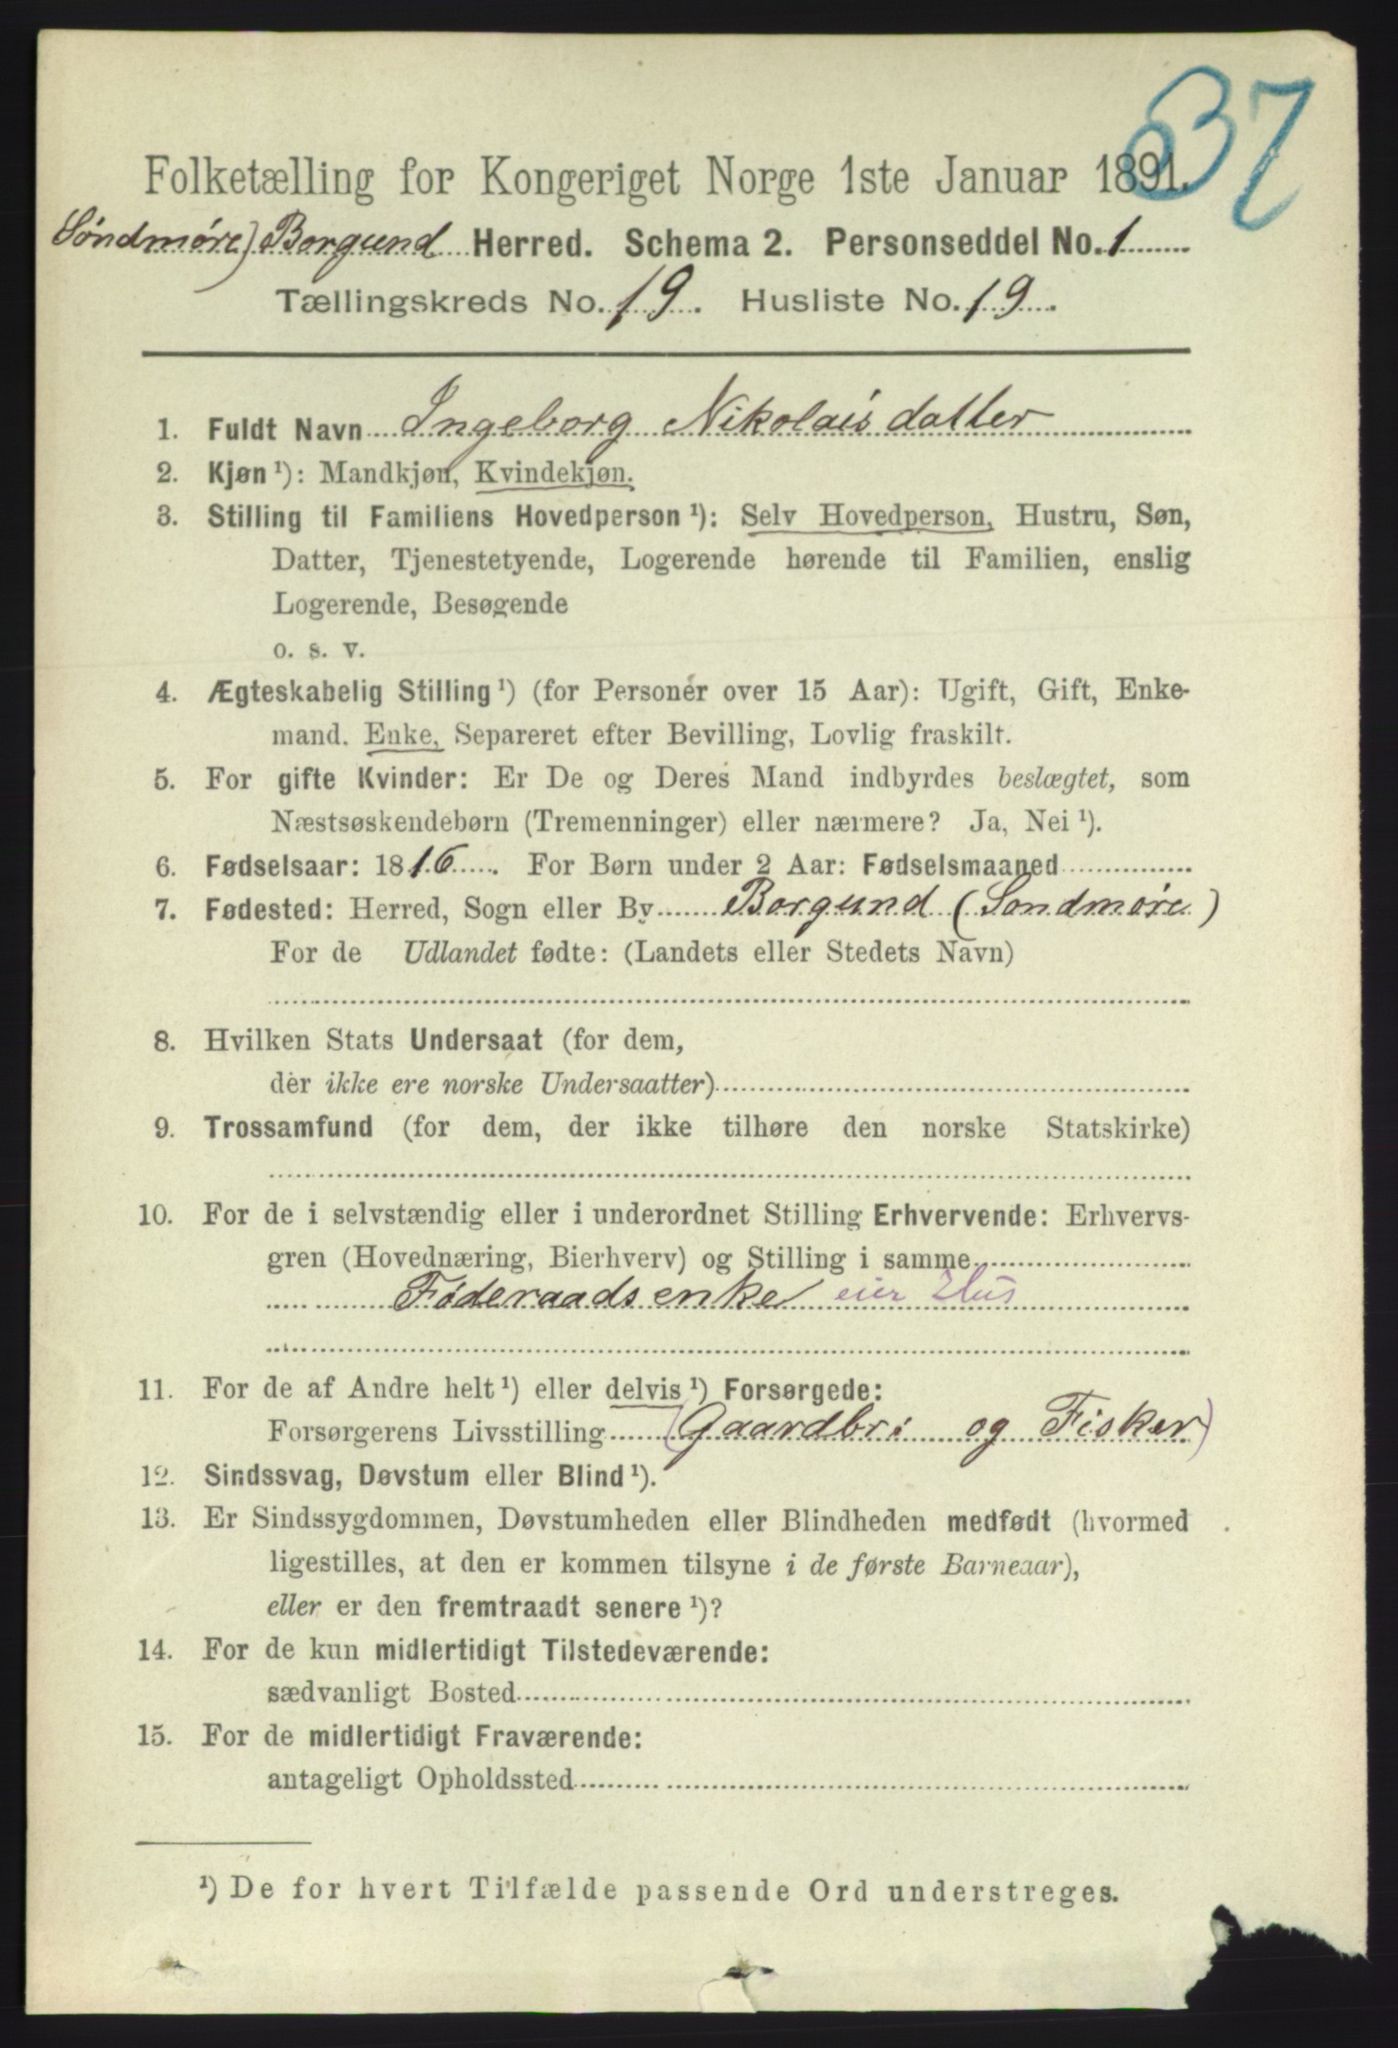 37
Folketælling for Kongeriget Norge 1ste Januar 1891.
Søndmøre) Borgund Herred. Schema 2. Personseddel No. 1
Tællingskreds No. 19. Husliste No. 19.
1. Fuldt Navn Ingeborg Nikolaisdatter
2. Kjøn ¹): Mandkjøn, Kvindekjøn.
3. Stilling til Familiens Hovedperson ¹): Selv Hovedperson, Hustru, Søn,
Datter, Tjenestetyende, Logerende hørende til Familien, enslig
Logerende, Besøgende
o. s. v.
4. Ægteskabelig Stilling ¹) (for Personer over 15 Aar): Ugift, Gift, Enke-
mand. Enke, Separeret efter Bevilling, Lovlig fraskilt.
5. For gifte Kvinder: Er De og Deres Mand indbyrdes beslægtet, som
Næstsøskendebørn (Tremenninger) eller nærmere? Ja, Nei ¹).
6. Fødselsaar: 1816. For Børn under 2 Aar: Fødselsmaaned
7. Fødested: Herred, Sogn eller By Borgund (Søndmøre)
For de Udlandet fødte: (Landets eller Stedets Navn)
8. Hvilken Stats Undersaat (for dem,
der ikke ere norske Undersaatter)
9. Trossamfund (for dem, der ikke tilhøre den norske Statskirke)
10. For de i selvstændig eller i underordnet Stilling Erhvervende: Erhvervs-
gren (Hovednæring, Bierhverv) og Stilling i samme
Føderaadsenke eier Hus
11. For de af Andre helt ¹) eller delvis ¹) Forsørgede:
Forsørgerens Livsstilling (Gaardbr: og Fisker)
12. Sindssvag, Døvstum eller Blind ¹).
13. Er Sindssygdommen, Døvstumheden eller Blindheden medfødt (hvormed
ligestilles, at den er kommen tilsyne i de første Barneaar),
eller er den fremtraadt senere ¹)?
14. For de kun midlertidigt Tilstedeværende:
sædvanligt Bosted
15. For de midlertidigt Fraværende:
antageligt Opholdssted
¹) De for hvert Tilfælde passende Ord understreges.